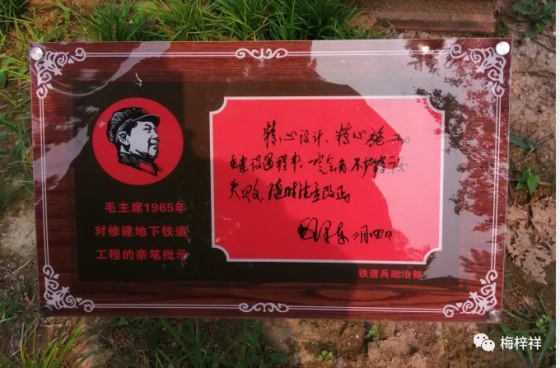 毛主席1965年
对修建地下铁道
工程的亲笔批示
精心设计、精心施工
在建设过程中，一定会有不少错误
失败，随时注意改正
毛泽东 二月四日
铁道兵政治部
梅梓祥